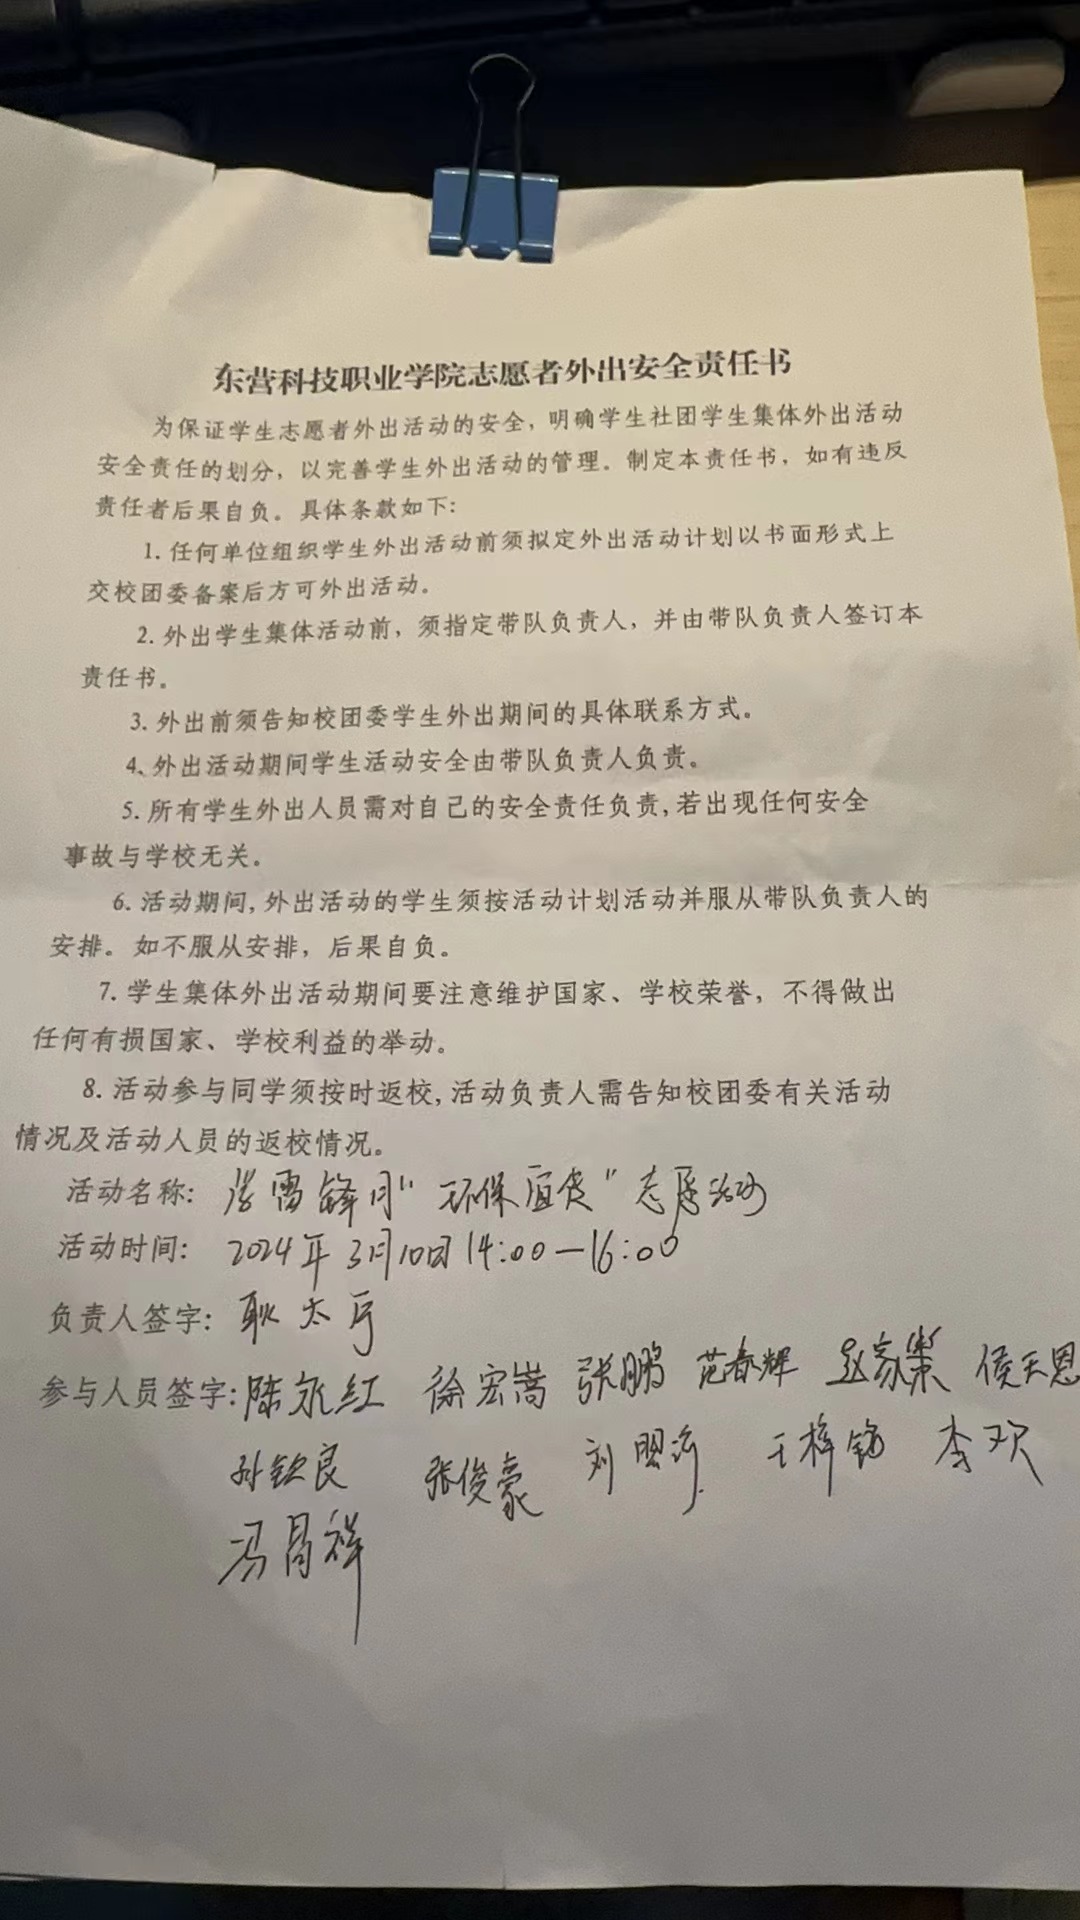 东营科技职业学院志愿者外出安全责任书
为保证学生志愿者外出活动的安全，明确学生社团学生集体外出活动
安全责任的划分，以完善学生外出活动的管理。制定本责任书，如有违反
责任者后果自负。具体条款如下：
1. 任何单位组织学生外出活动前须拟定外出活动计划以书面形式上
交校团委备案后方可外出活动。
2. 外出学生集体活动前，须指定带队负责人，并由带队负责人签订本
责任书。
3. 外出前须告知校团委学生外出期间的具体联系方式。
4、外出活动期间学生活动安全由带队负责人负责。
5. 所有学生外出人员需对自己的安全责任负责,若出现任何安全
事故与学校无关。
6. 活动期间,外出活动的学生须按活动计划活动并服从带队负责人的
安排。如不服从安排，后果自负。
7. 学生集体外出活动期间要注意维护国家、学校荣誉，不得做出
任何有损国家、学校利益的举动。
8. 活动参与同学须按时返校,活动负责人需告知校团委有关活动
情况及活动人员的返校情况。
活动名称：学雷锋月“环保 ”志愿活动
活动时间：2024年3月10日14:00—16:00
负责人签字：耿太
参与人员签字：陈永红 徐宏嵩 张鹏 范春辉 赵家 侯天恩
孙钦良 张俊豪 刘 王梓 李欢
冯昌祥